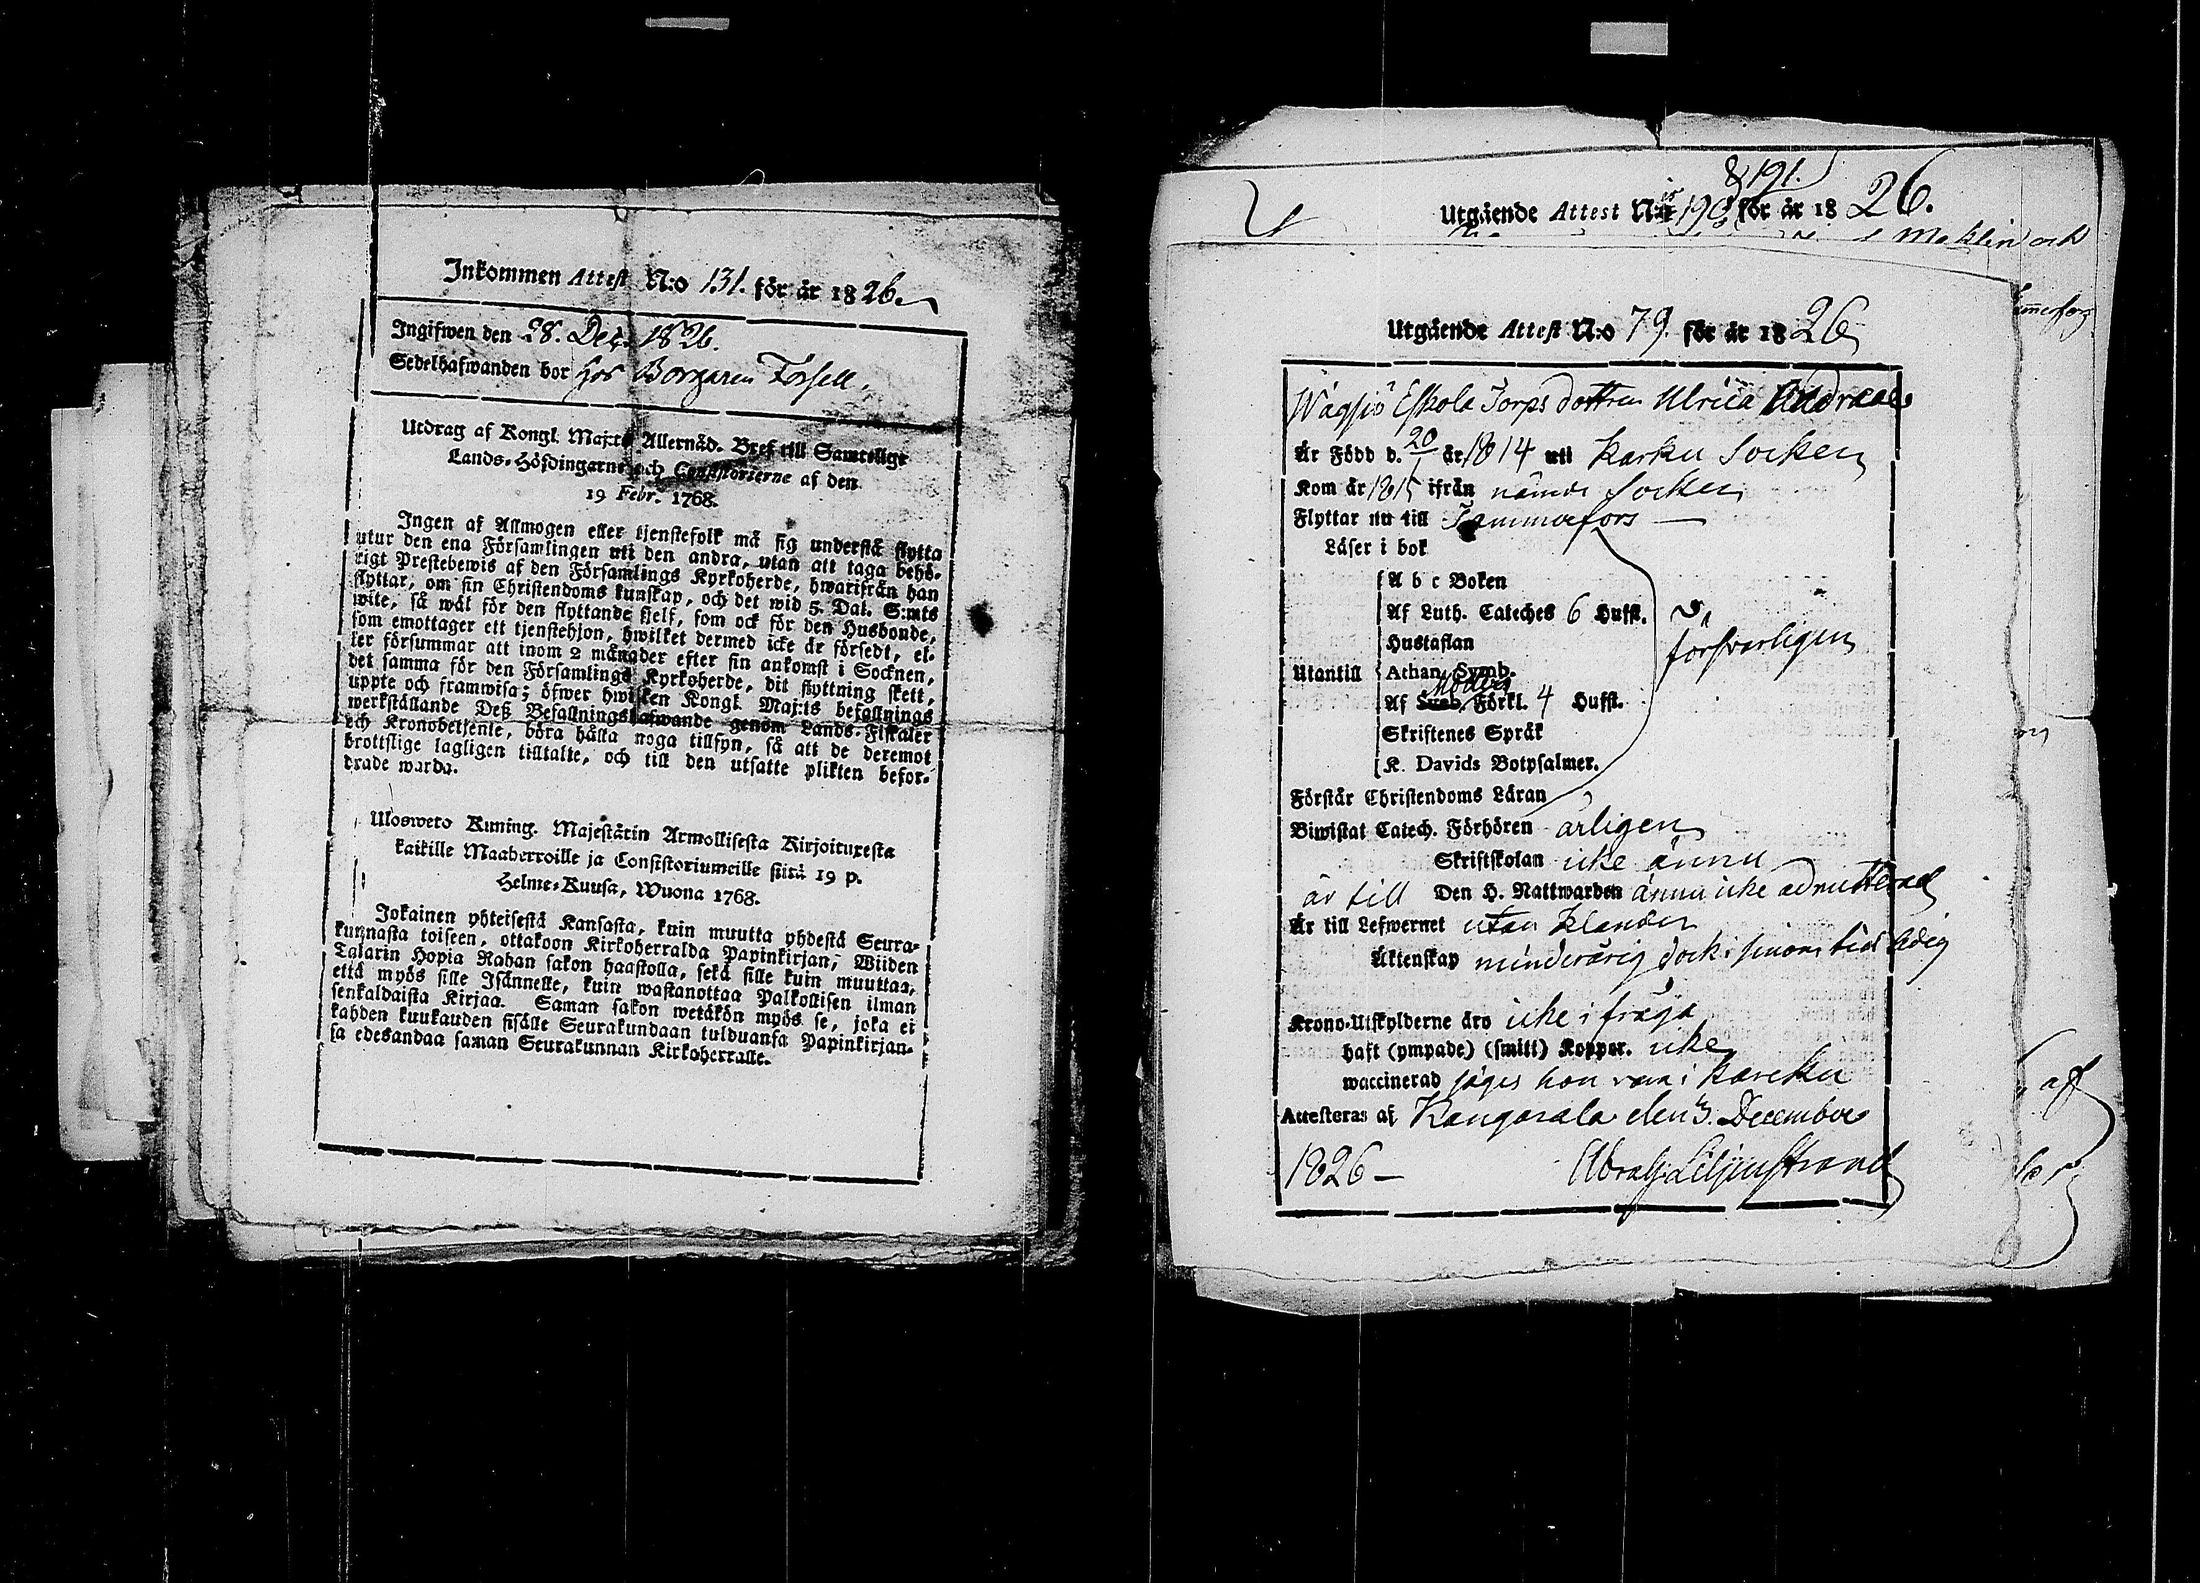 Inkommen Attest N:o 131. för år 1826.
Ingifwen den 28. Dec. 1826.
Sedelhafwanden bor hos Borgaren Forsell.
Utdrag af Kongl. Maj:ts Allernåd. Bref till Samtelige
Lands-Höfdingarne och Consistorierne af den
19 Febr. 1768.
Ingen af Allmogen eller tjenstefolk må sig understå flytta
utur den ena Församlingen uti den andra, utan att taga behö-
rigt Prestebewis af den Församlings Kyrkoherde, hwarifrån han
flyttar, om sin Christendoms kunskap, och det wid 5. Dal. S:mts
wite, så wäl för den flyttande sjelf, som ock för den Husbonde,
som emottager ett tjenstehjon, hwilket dermed icke är försedt, el-
ler försummar att inom 2 månader efter sin ankomst i Socknen,
det samma för den Församlings Kyrkoherde, dit flyttning skett,
uppte och framwisa; öfwer hwilken Kongl. Maj:ts befallnings
werkställande Deß Befallningshafwande genom Lands-Fiskaler
och Kronobetjente, böra hålla noga tillsyn, så att de deremot
brottslige lagligen tilltalte, och till den utsatte plikten befor-
drade warda.
Ulosweto Kuning. Majestätin Armollisesta Kirjoituxesta
kaikille Maaherroille ja Consistoriumeille siitä 19 p.
Helme-Kuusa, Wuona 1768.
Jokainen yhteisestä Kansasta, kuin muutta yhdestä Seura-
kunnasta toiseen, ottakoon Kirkoherralda Papinkirjan, Wiiden
Talarin Hopia Rahan sakon haastolla, sekä sille kuin muuttaa,
että myös sille Isännelle, kuin wastanottaa Palkollisen ilman
senkaldaista Kirjaa. Saman sakon wetäkön myös se, joka ei
kahden kuukauden sisälle Seurakundaan tulduansa Papinkirjan-
sa edesandaa saman Seurakunnan Kirkoherralle.
& 191.
Utgående Attest N:is 190 för år 1826.
Maklin och
Utgående Attest N:o 79. för år 1826
Wägsjö Eskola Torps dottren Ulrica
Är Född d. 20/1 år 1814 uti Karku Socken
Kom år 1815 ifrån nämde Socken
Flyttar nu till Tammerfors
Läser i bok
A b c Boken
Af Luth. Cateches 6 Hufst.
Hustaflan
Utantill Athan. Symb.
Af Sweb. Förkl. 4 Hufst.
Skriftenes Språk
K. Davids Botpsalmer.
försvarligen
Förstår Christendoms Läran
Biwistat Catech. Förhören årligen
Skriftskolan icke ännu
är till Den H. Nattwarden ännu icke admitterad
Är till Lefwernet utan klander
Äktenskap minderårig dock i sinom tid ledig
Krono-Utskylderne äro icke i fråga
haft (ympade) (smitt) Koppor. icke
waccinerad säges hon vara i Karcku
Attesteras af Kangasala den 3. December
1826 Abrah. Liljenstrand
aff